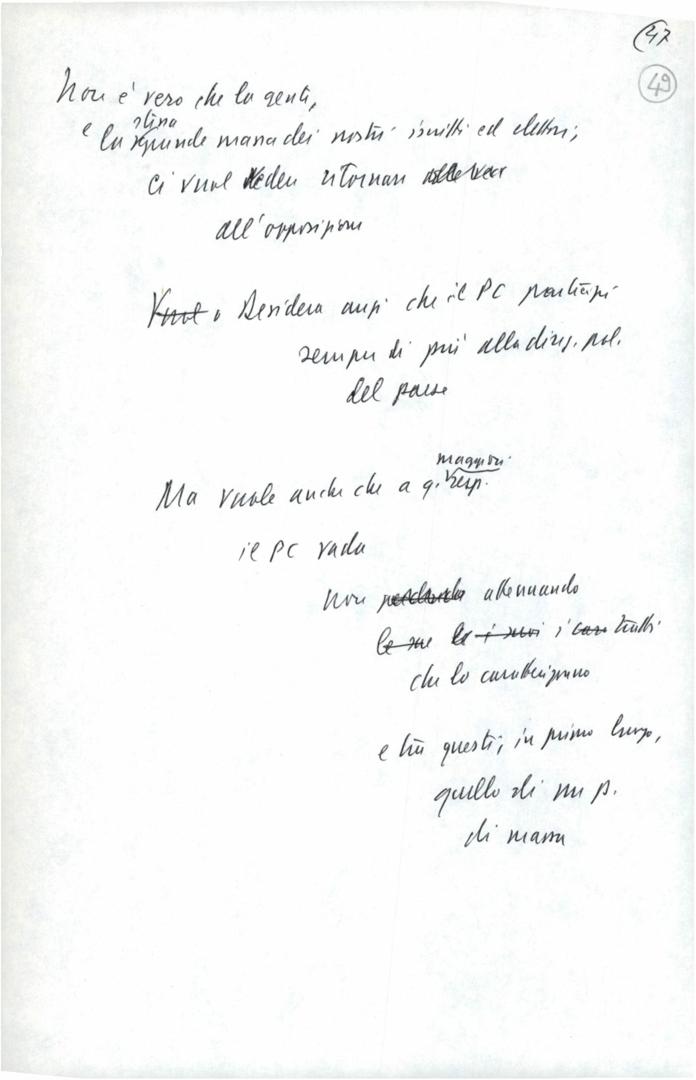 47
49
Non è vero che la gente,
e la stessa grande massa dei nostri iscritti ed elettori,
ci vuol veder ritornare
all'opposizione
Vuol Desidera anzi che il PC partecipi
sempre di più alla direz. pol.
del paese
maggiori
Ma vuole anche che a q. resp.
il PC vada
non attenuando
le sue i suoi i tratti
che lo caratterizzano
e tra questi, in primo luogo,
quello di un p.
di massa